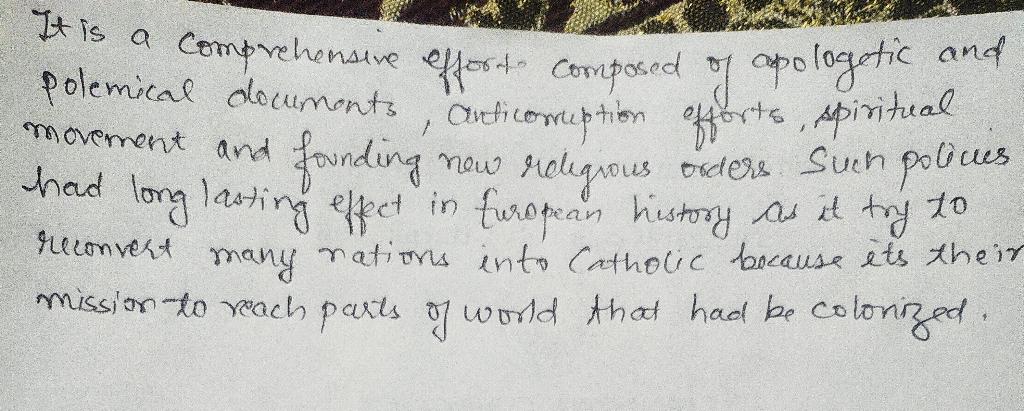 It is a comprehensive effort composed of apologetic and
polemical documents, anticorruption efforts, spiritual
movement and founding new religious orders. Such policies
had long lasting effect in European history as it try to
reconvert many nations into Catholic because its their
mission to reach parts of world that had be colonized.